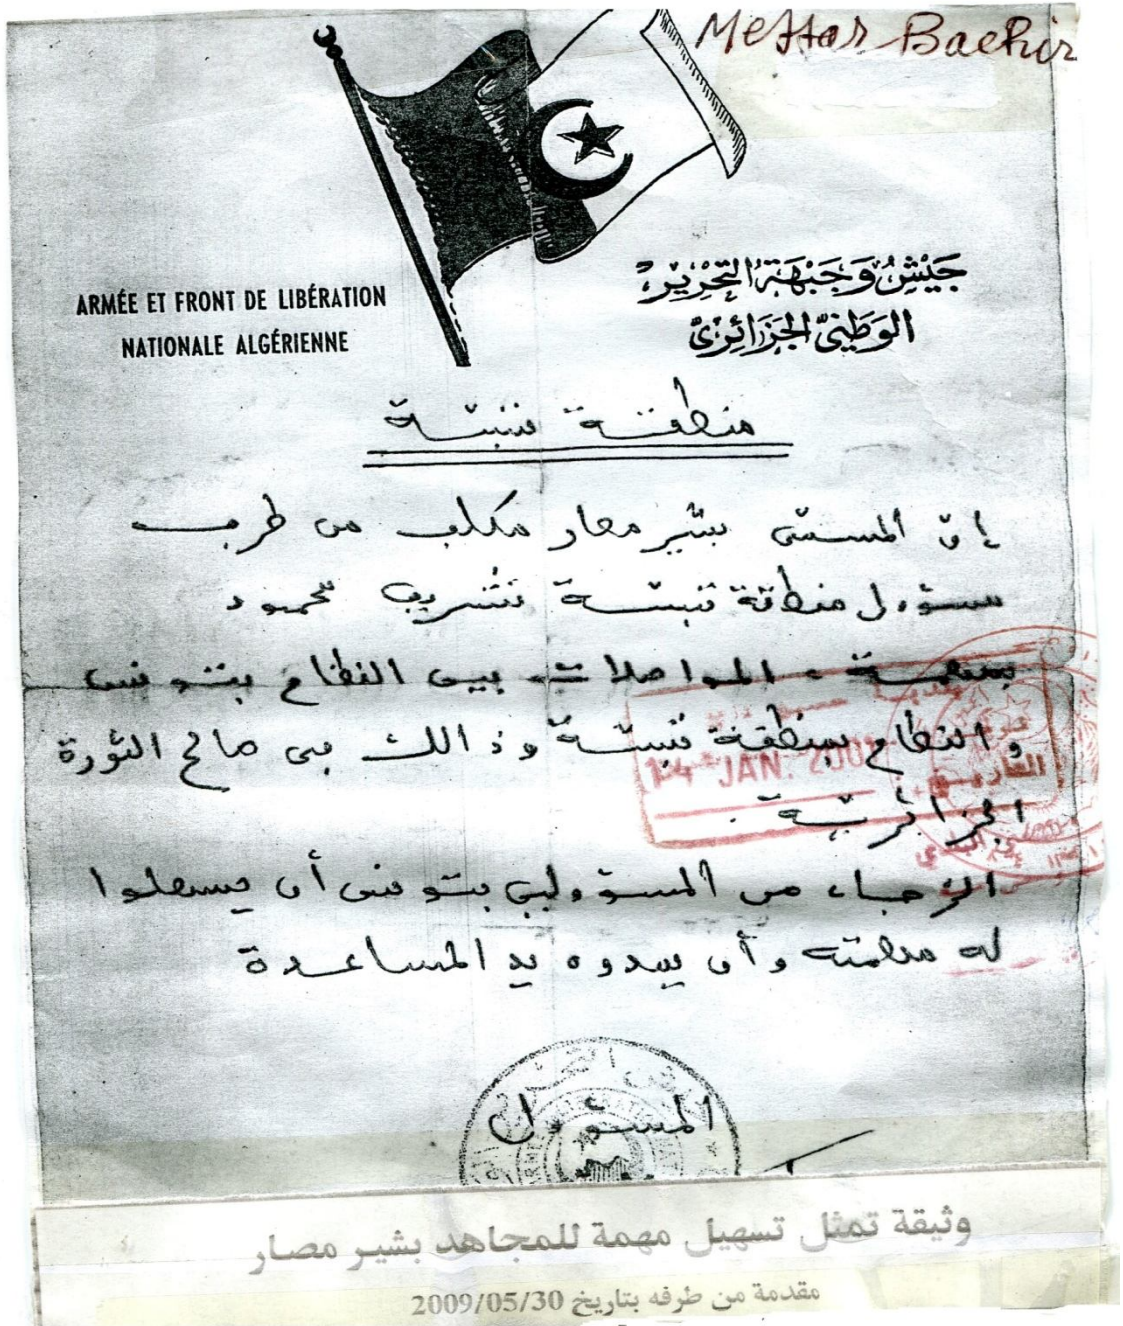 Mettar Bachir
ARMÉE ET FRONT DE LIBÉRATION
NATIONALE ALGÉRIENNE
جَيْشُ وَجَبْهَةُ التَّحْرِيرِ
الوَطَنِيّ الجَزَائِرِيّ
منطقة تبسة
إن المسمى بشير معار مكلف من طرف
مسؤول منطقة تبسة شريف محمود
بمهمة المواصلات بين النظام بتونس
و النظام بمنطقة تبسة وذالك في صالح الثورة
الجزائرية.
الرجاء من المسؤولين بتونس أن يسهلوا
له مهمته وأن يمدوه يد المساعدة
14 JAN. 200
المسؤول
وثيقة تمثل تسهيل مهمة للمجاهد بشير مصار
مقدمة من طرفه بتاريخ 2009/05/30